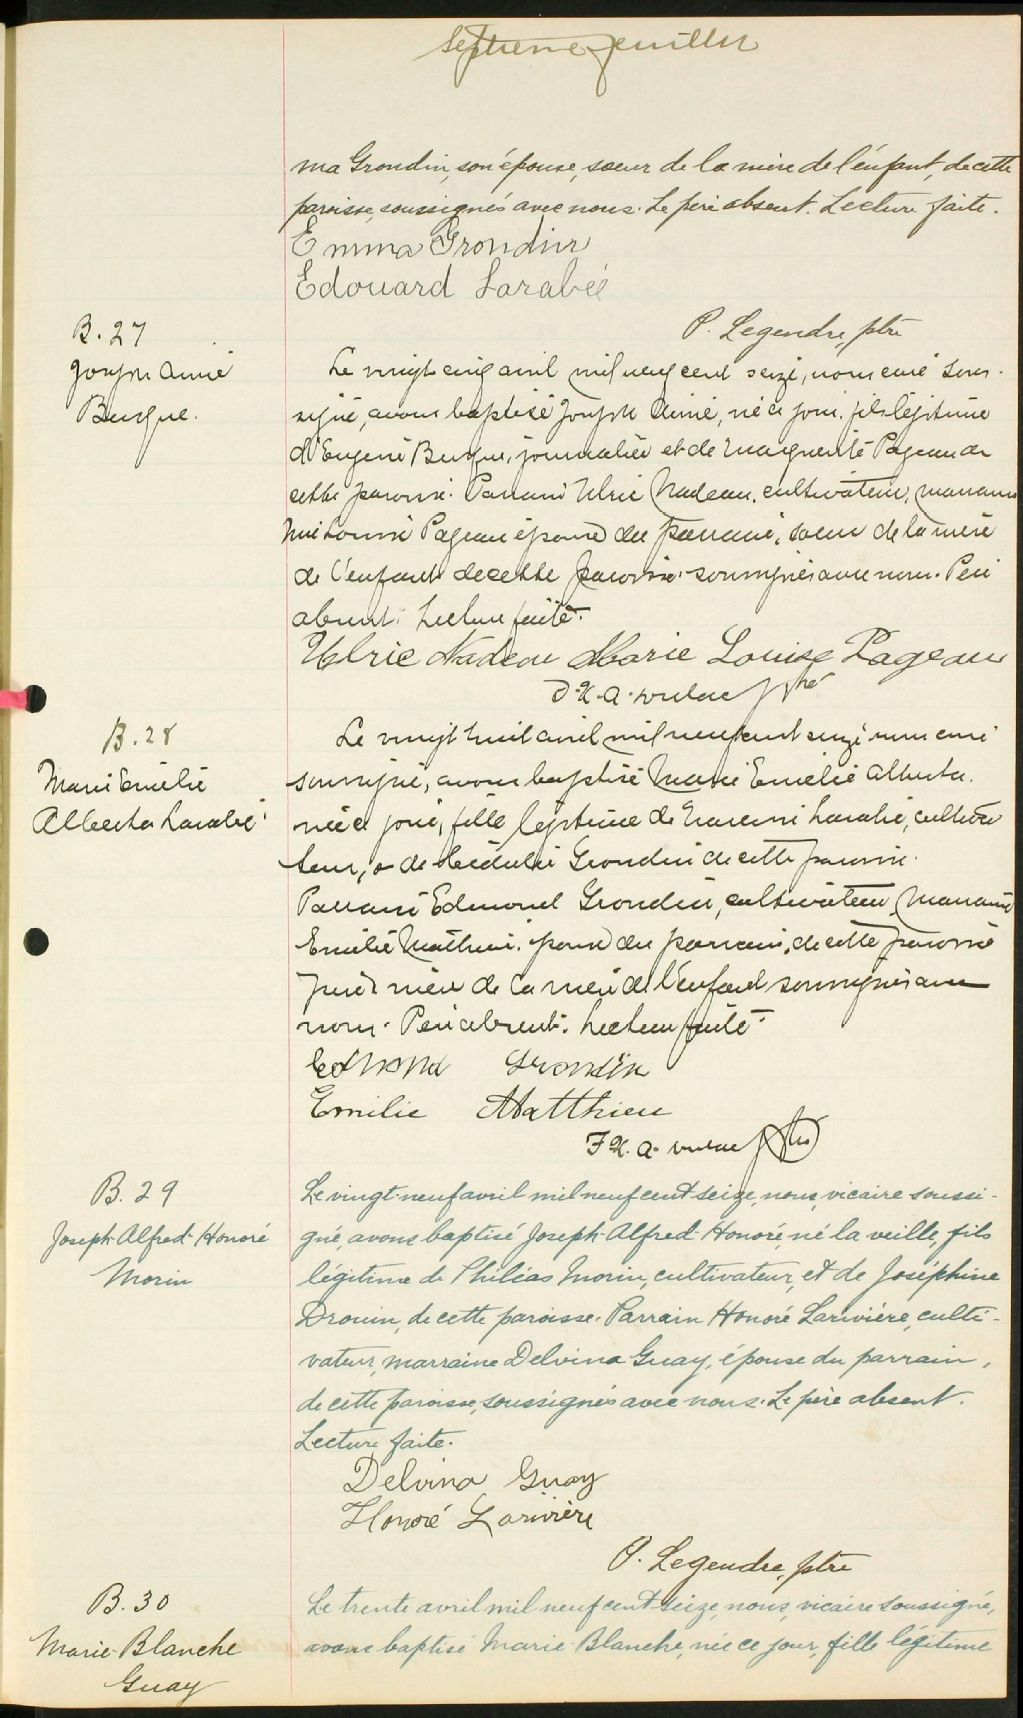 Septième feuillet
ma Grondin, son épouse, soeur de la mère de l'enfant, de cette
paroisse, soussignés avec nous. Le père absent. Lecture faite.
Emma Grondin
Edouard Larabée
P. Legendre, ptre
B. 27
Joseph Aimé
Burque.
Le vingt cinq avril mil neuf cent seize, nous curé sous-
signé, avons baptisé Joseph Aimé, né ce jour, fils légitime
d'Eugène Burque, journalier et de Marguerite Pageau de
cette paroisse. Parrain Ulric Nadeau, cultivateur, marraine
Louise Pageau épouse du parrain, soeur de la mère
de l'enfant de cette paroisse soussignés avec nous. Père
absent. Lecture faite.
Ulric Nadeau Marie Louise Pageau
ptre
B. 28
Marie Emélie
Alberta Larabé
Le vingt huit avril mil neuf cent seize nous curé
soussigné, avons baptisé Marie Emélie Alberta.
née ce jour, fille légitime de Narcisse Larabé, cultiva
teur, & de Grondin de cette paroisse.
Parrain Edmond Grondin, cultivateur, Marraine
Emélie Mathieu. épouse du parrain, de cette paroisse
père & mère de la mère de l'enfant soussignés avec
nous. Père absent. Lecture faite.
Edmond Grondin
Emilie Matthieu
F. X. A. ptre
B. 29
Joseph-Alfred-Honoré
Morin
Le vingt-neuf avril mil neuf cent seize, nous, vicaire soussi-
gné, avons baptisé Joseph-Alfred-Honoré, né la veille, fils
légitime de Philéas Morin, cultivateur, et de Joséphine
Drouin, de cette paroisse. Parrain Honoré Larivière, culti-
vateur, marraine Delvina Guay, épouse du parrain,
de cette paroisse, soussignés avec nous. Le père absent.
Lecture faite.
Delvina Guay
Honoré Larivière
P. Legendre, ptre
B. 30
Marie-Blanche
Guay
Le trente avril mil neuf cent seize, nous, vicaire soussigné,
avons baptisé Marie-Blanche, née ce jour, fille légitime